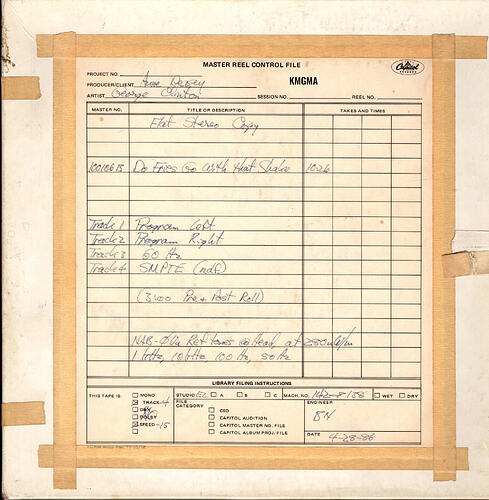 MASTER REEL CONTROL FILE
Capitol
PROJECT NO.
KMGMA
PRODUCER/CLIENT
ARTIST George Clinton SESSION NO. REEL NO.
MASTER NO. TITLE OR DESCRIPTION TAKES AND TIMES
Flat Stereo Copy
Do Fries Go With that Shake 10:26
Track 1 Program Left
Track 2 Program Right
Track 3 60 Hz
Track 4 SMPTE (ndf)
(3:00 Pre + Post Roll)
Ref tones @ Head, at
1 kHz, 10 kHz, 100 Hz, 50 Hz
LIBRARY FILING INSTRUCTIONS
THIS TAPE IS: MONO STUDIO A B C MACH. NO. WET DRY
TRACK-4 FILE CATEGORY ENGINEER
DBX CSD
DOLBY CAPITOL AUDITION
SPEED-15 CAPITOL MASTER NO. FILE
CAPITOL ALBUM PROJ. FILE DATE